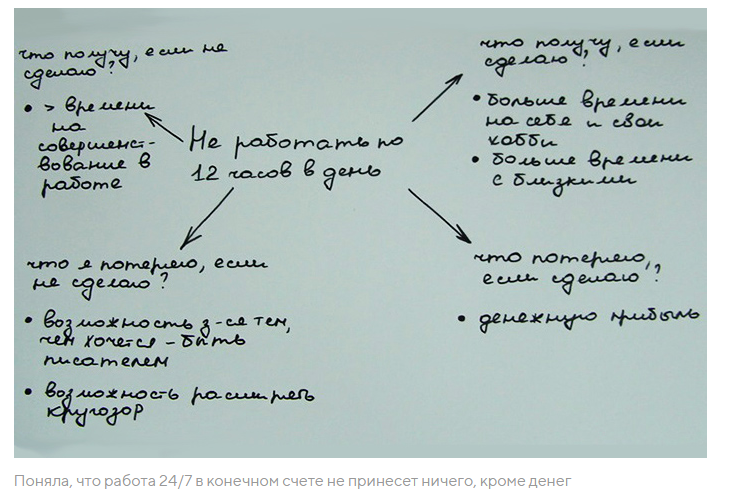 что получу, если не
сделаю?
• > времени
на
совершенст-
вование в
работе
что получу, если
сделаю?
• больше времени
на себя и свои
хобби
• больше времени
с близкими
Не работать по
12 часов в день
что я потеряю, если
не сделаю?
• возможность з-ся тем,
чем хочется – быть
писателем
• возможность расширять
кругозор
что потеряю,
если сделаю?
• денежную прибыль
Поняла, что работа 24/7 в конечном счете не принесет ничего, кроме денег